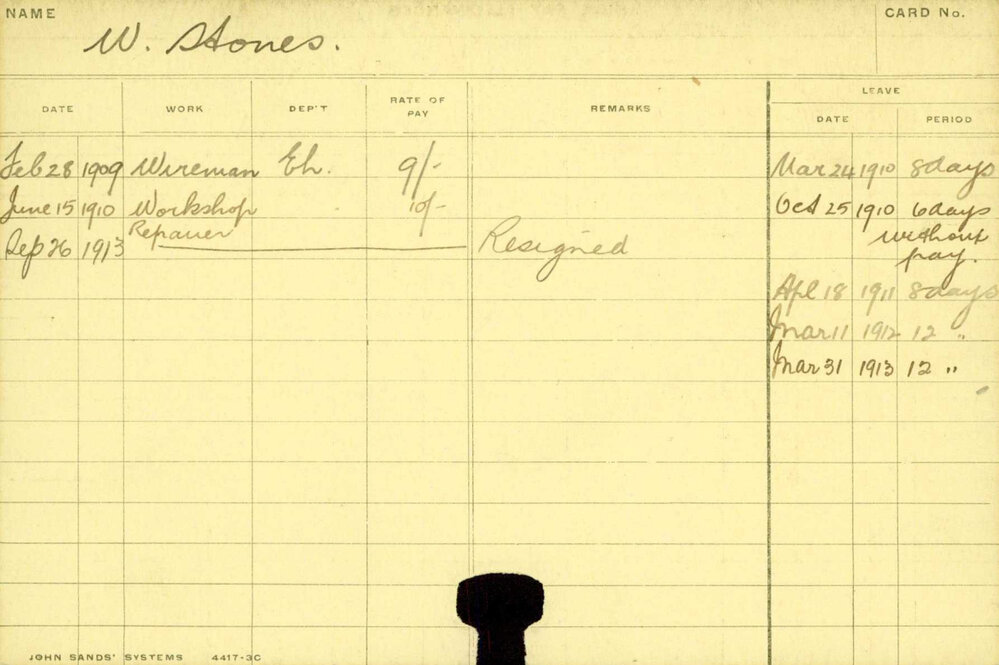 NAME
CARD No.
W. Stones.
LEAVE
DATE WORK DEP'T RATE OF PAY REMARKS DATE PERIOD
Feb 28 1909 Wireman 9/- Mar 24 1910 8 days
June 15 1910 Workshop 10/- Oct 25 1910 6 days
Repairer without
Sep 26 1913 Resigned pay.
Apl 18 1911 8 days
Mar 11 1912 12 "
Mar 31 1913 12 "
JOHN SANDS' SYSTEMS 4417-3C